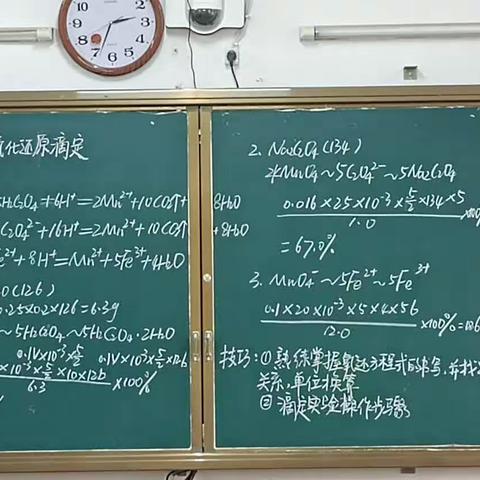 化还原滴定
5H2C2O4+6H⁺=2Mn²⁺+10CO2↑+8H2O
C2O4²⁻+16H⁺=2Mn²⁺+10CO2↑+8H2O
Fe²⁺+8H⁺=Mn²⁺+5Fe³⁺+4H2O
O(126)
0.25×0.2×126=6.3g
~5H2C2O4~5H2C2O4·2H2O
0.1V×10⁻³×5/2 0.1V×10⁻³×5/2×126
×10⁻³×5/2×10×126
6.3
×100%
2. Na2C2O4(134)
2MnO4⁻~5C2O4²⁻~5Na2C2O4
0.016×25×10⁻³×5/2×134×5
1.0
×100%
=67.0%
3. MnO4⁻~5Fe²⁺~5Fe³⁺
0.1×20×10⁻³×5×4×56
12.0
×100%=
技巧:①熟练掌握氧还方程式的书写,并找
关系,单位换算
②滴定实验操作步骤